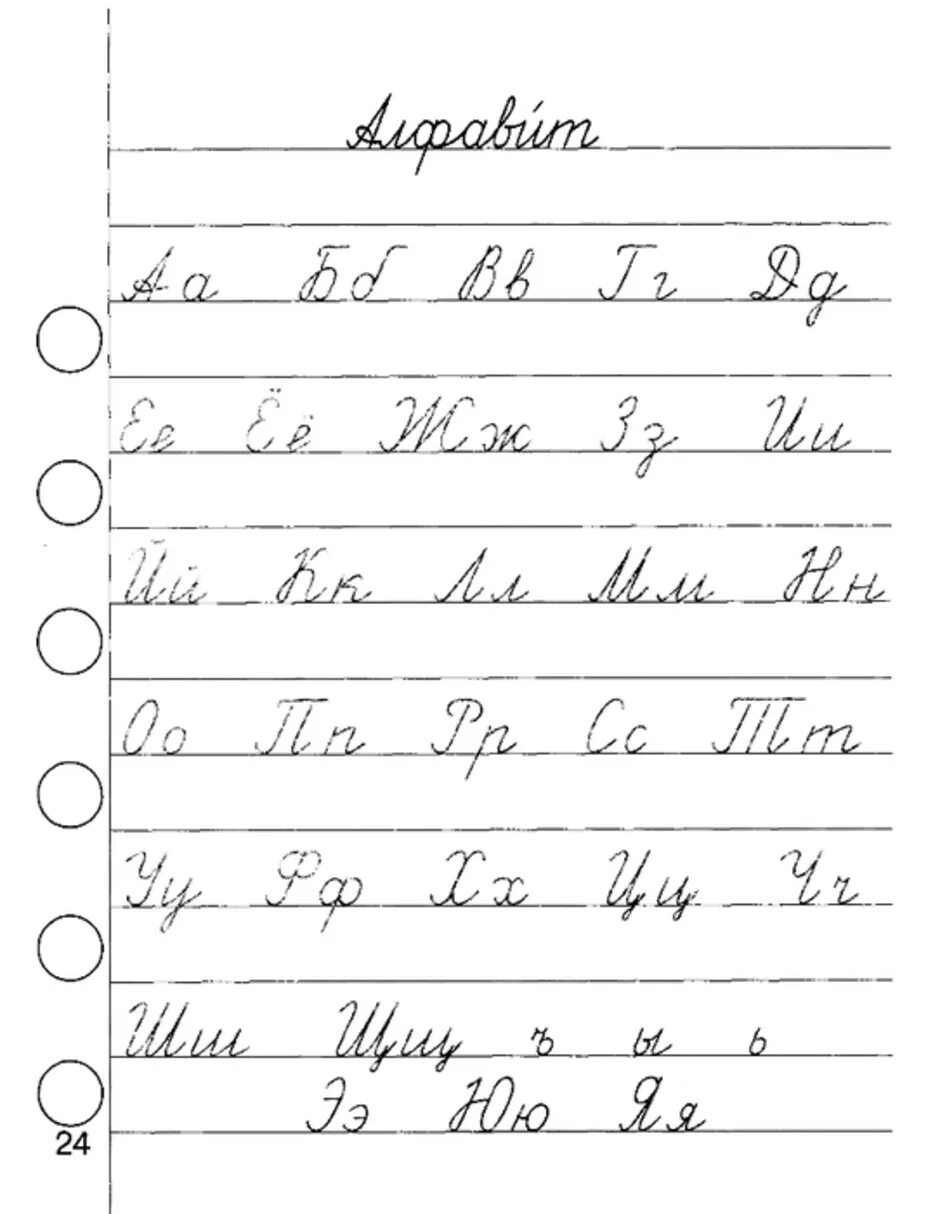 Алфави́т
Аа Бб Вв Гг Дд
Ее Ёё Жж Зз Ии
Йй Кк Лл Мм Нн
Оо Пп Рр Сс Тт
Уу Фф Хх Цц Чч
Шш Щщ ъ ы ь
Ээ Юю Яя
24